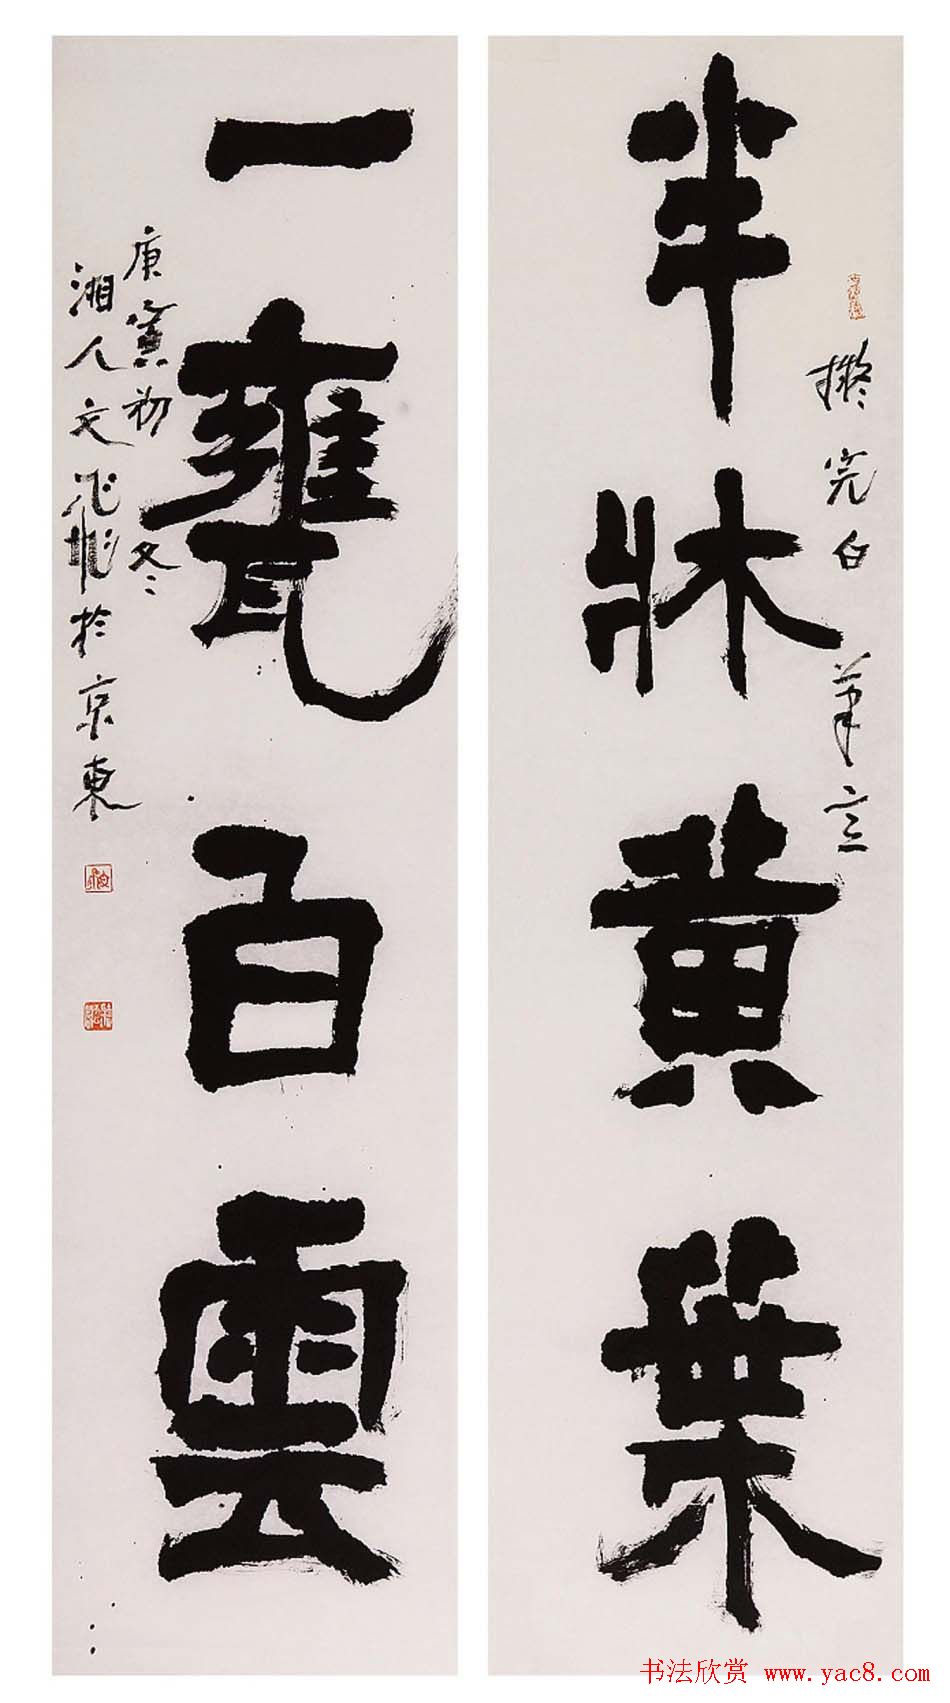 擬完白筆意
半牀黄葉
一甕白雲
庚寅初冬
湘人文於京東
书法欣赏 www.yac8.com